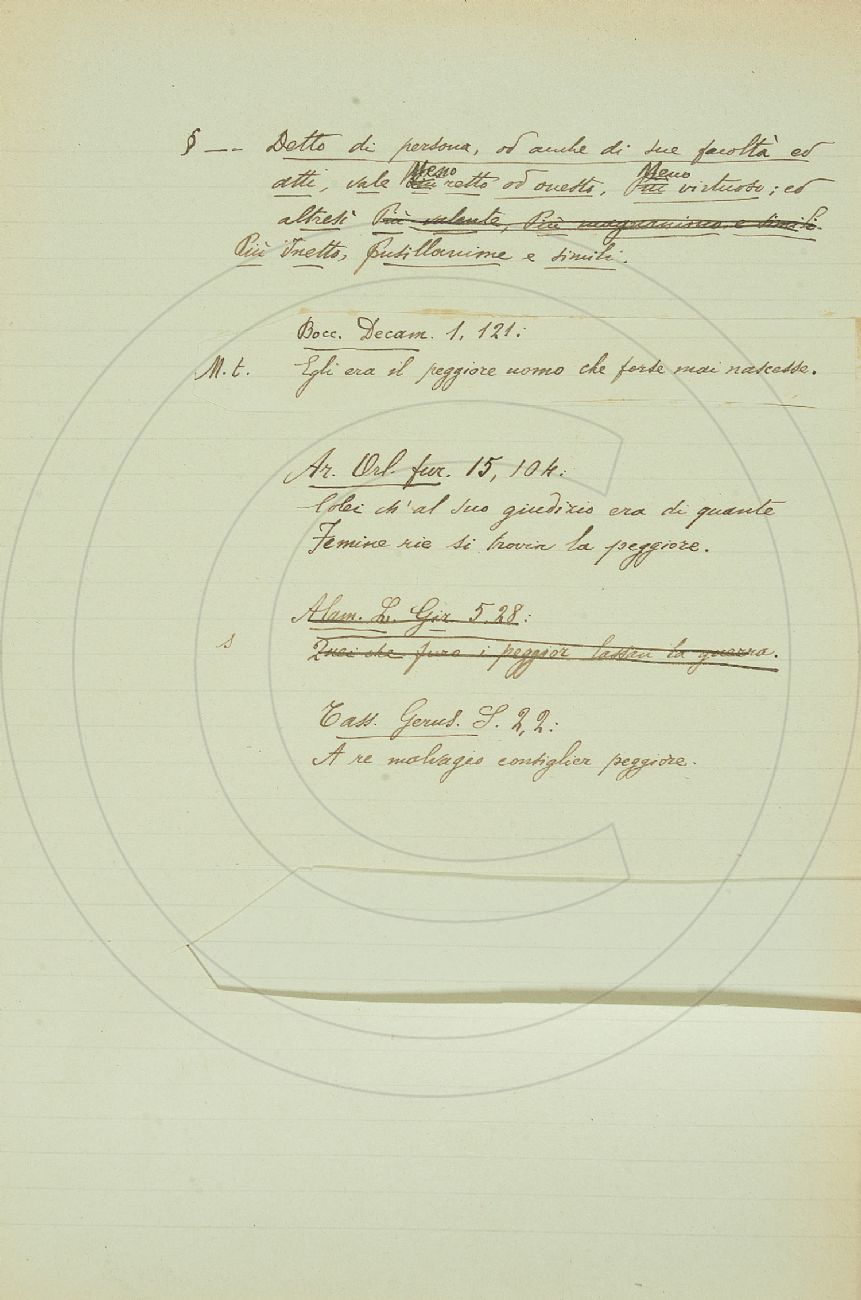 § —– Detto di persona, od anche di sue facoltà ed
atti, vale Meno retto od onesto, Meno virtuoso; ed
altresì Più valente, Più magnanimo, e simili.
Più Inetto, pusillanime e simili.
Bocc. Decam. 1, 121:
M. t. Egli era il peggiore uomo che forse mai nascesse.
Ar. Orl. fur. 15, 104:
Colei ch'al suo giudizio era di quante
Femine rie si trovin la peggiore.
Alam. L. Gir. 5. 28:
s Quei che furo i peggior lassin la guerra.
Tass. Gerus. S. 2, 2:
A re malvagio consiglier peggiore.